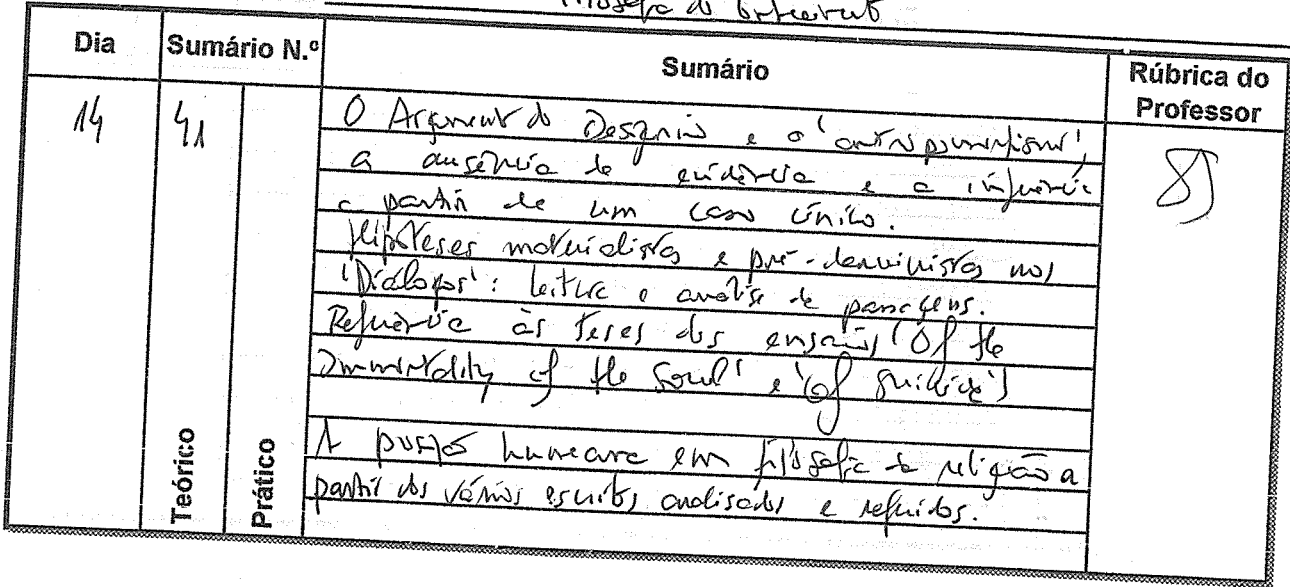 Filosofia do
Dia
Sumário N.º
Sumário
Rúbrica do
Professor
14
41
O Argumento do Desígnio e o 'antropomorfismo',
a ausência de evidência e a inferência
a partir de um caso único.
Hipóteses materialistas e pré-darwinistas nos
'Diálogos': leitura e análise de passagens.
Referência às teses dos ensaios 'Of the
Immortality of the Soul' e 'Of Suicide'
A posição humeana em filosofia da religião a
partir dos vários escritos analisados e referidos.
Teórico
Prático